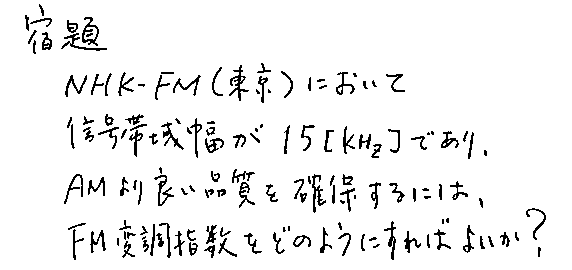 宿題
NHK-FM(東京)において
信号帯域幅が15[kHz]であり、
AMより良い品質を確保するには、
FM変調指数をどのようにすればよいか?